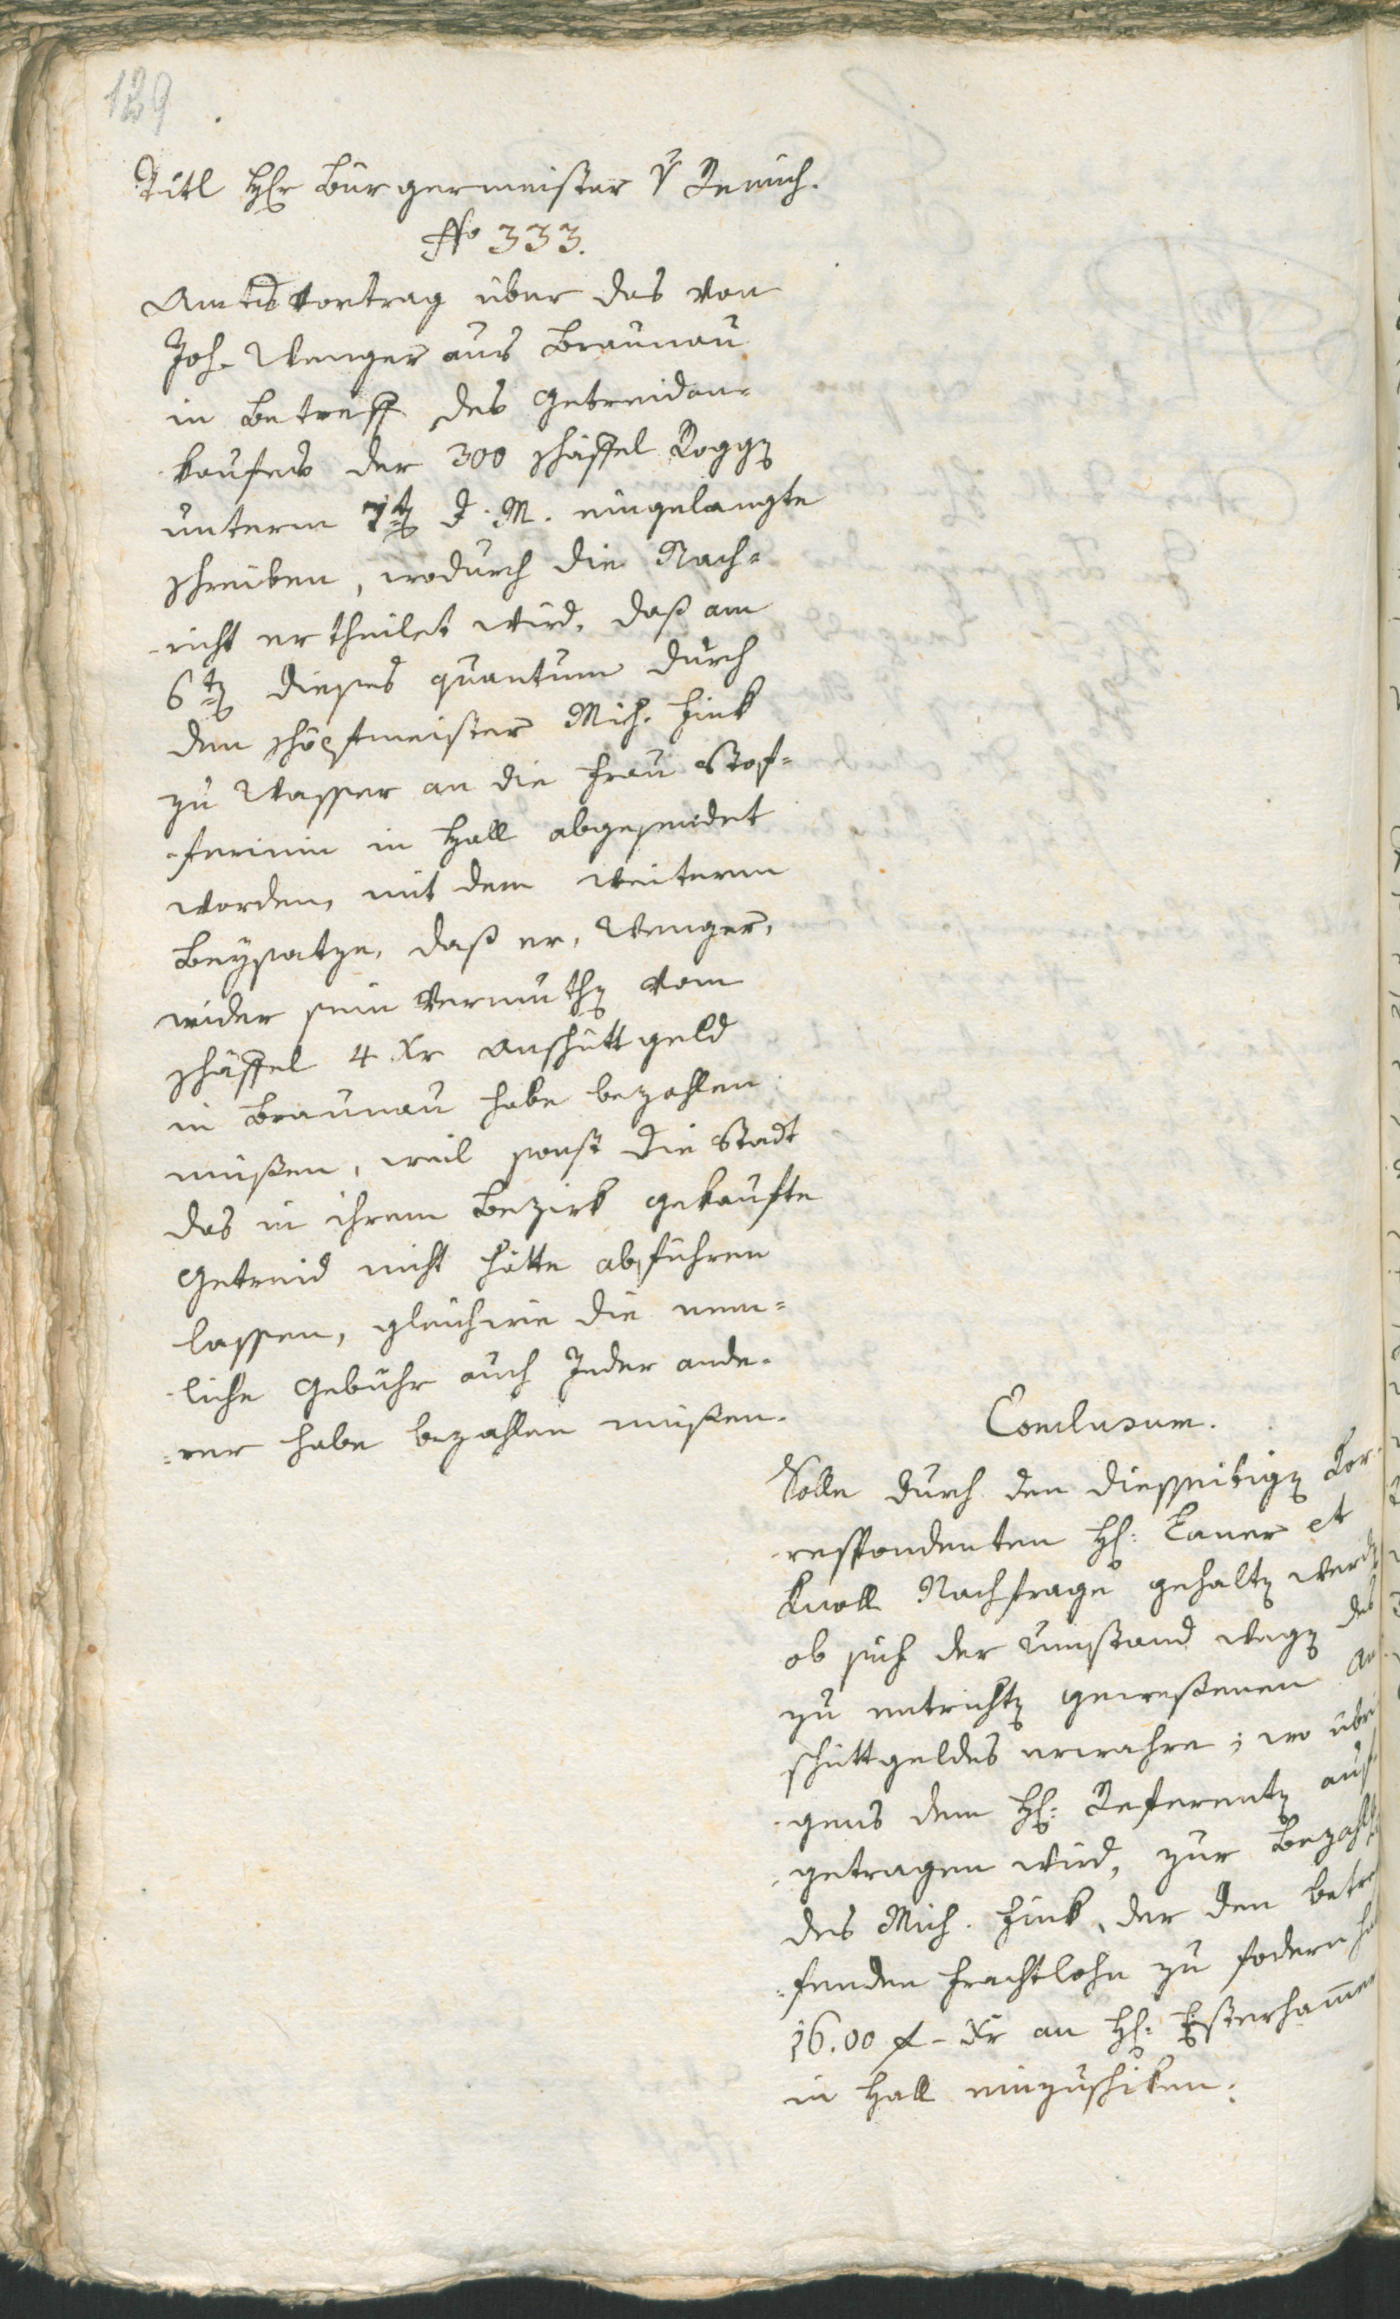 129
Titl Hr Burgermeister v Remich.
No 333.
Amtsvortrag über das von
Joh. Wenger aus Braunau
in Betreff des Getreidan-
kaufes der 300 schäffel Roggen
unterm 7ten d. M. eingelangte
schreiben, wodurch die Nach-
-richt ertheilet wird, daß am
6ten dieses quantum durch
den schöpfmeister Mich. Fink
zu Wasser an die Frau Stof-
-ferinin in Hall abgesendet
worden, mit dem weiterm
Beysatze, daß er, Wenger,
wider sein Vermuthen vom
schäffel 4 Xr Anschüttgeld
in Braunau habe bezahlen
müßen, weil sonst die Stadt
das in ihrem Bezirk gekaufte
Getreid nicht hätte abführen
lassen, gleichwie die nem-
-liche Gebühr auch Jeder ande-
-rer habe bezahlen müßen.
Conclusum.
Solle durch den diesseitigen Cor-
-respondenten H: Laner et
Knoll Nachfrage gehalten werden
ob sich der Umstand wegen des
zu entrichten gewesenen An
schüttgeldes erwahre; wo übri
-gens dem H: Referenten auf-
-getragen wird, zur Bezahlg
des Mich. Fink, der den betref
-fenden Frachtlohn zu fodern hat
16.00 f - Xr an H: Esterhamer
in Hall einzuschiken.